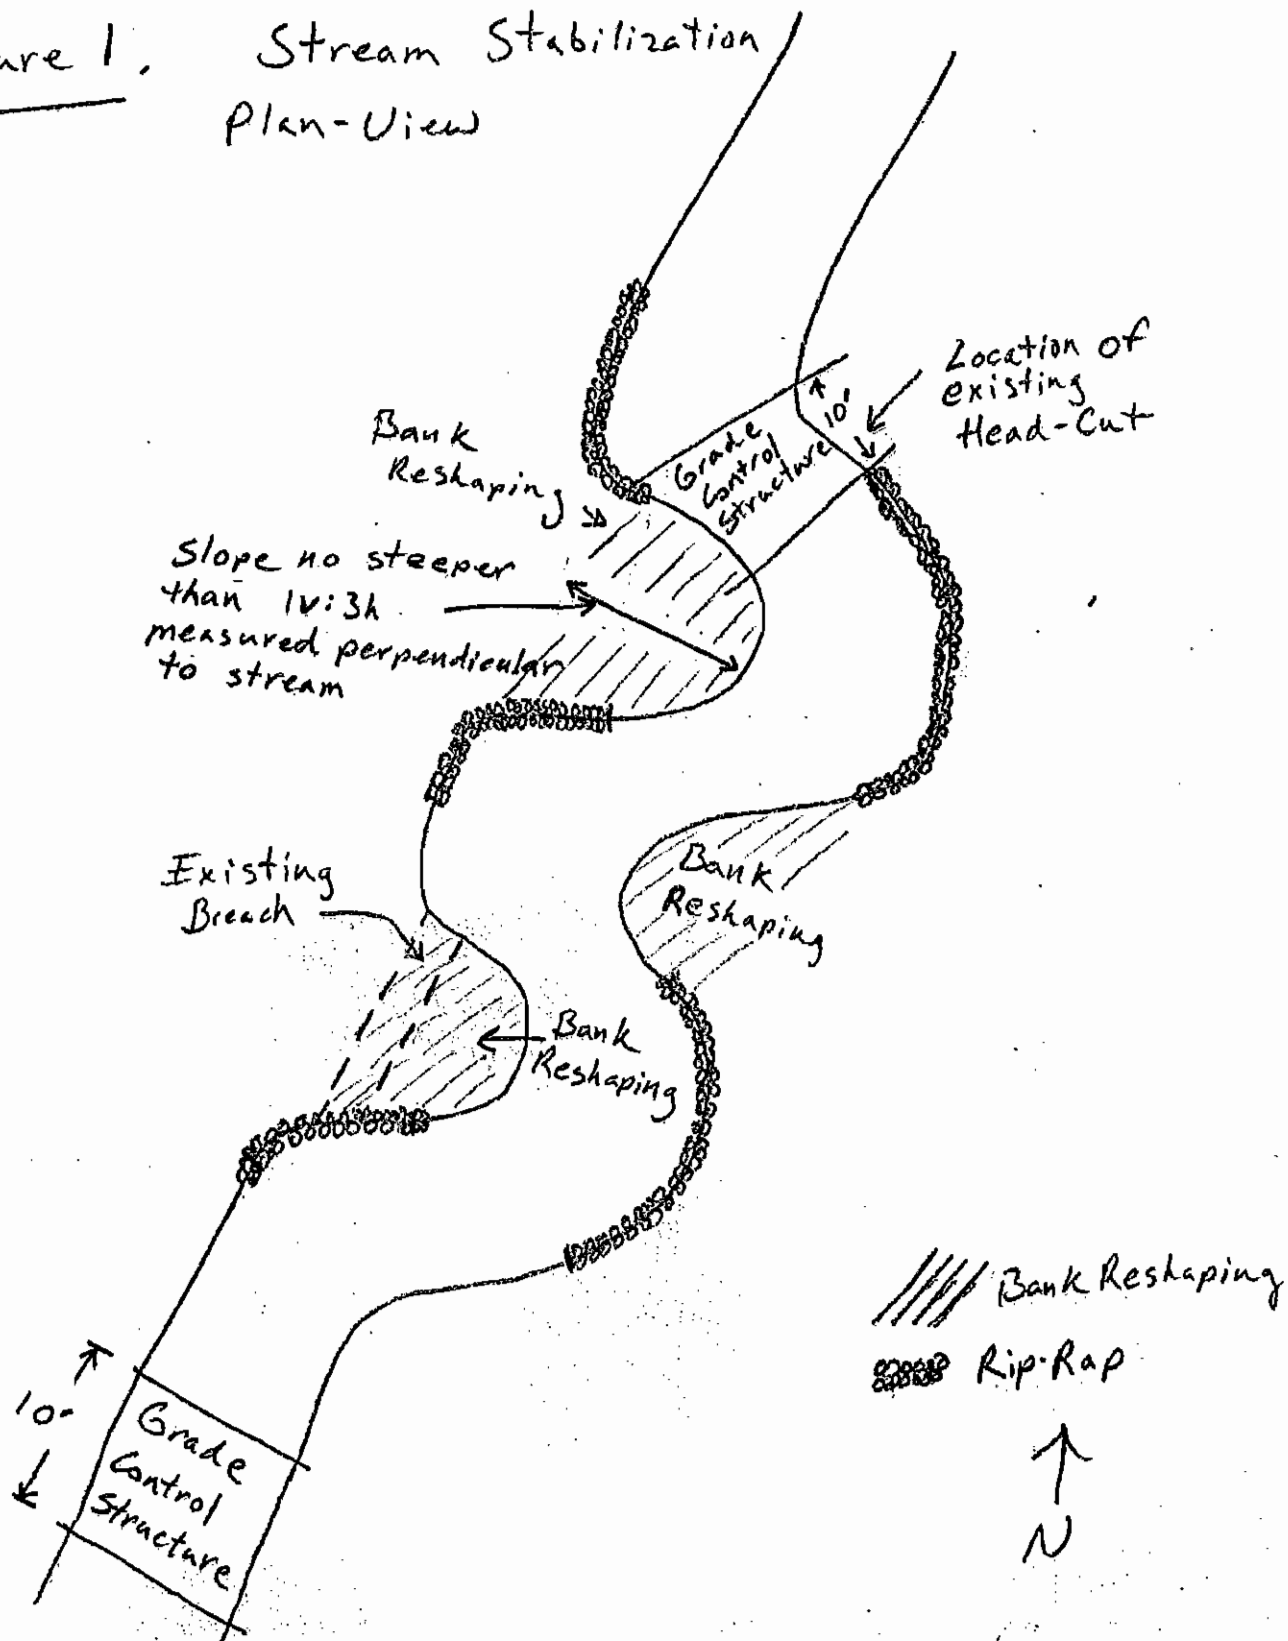 ure 1. Stream Stabilization
Plan-View
Location of
existing
Head-Cut
10'
Grade
Control
Structure
Bank
Reshaping
Slope no steeper
than 1v:3h
measured perpendicular
to stream
Existing
Breach
Bank
Reshaping
Bank
Reshaping
Bank Reshaping
Rip-Rap
N
10'
Grade
Control
Structure